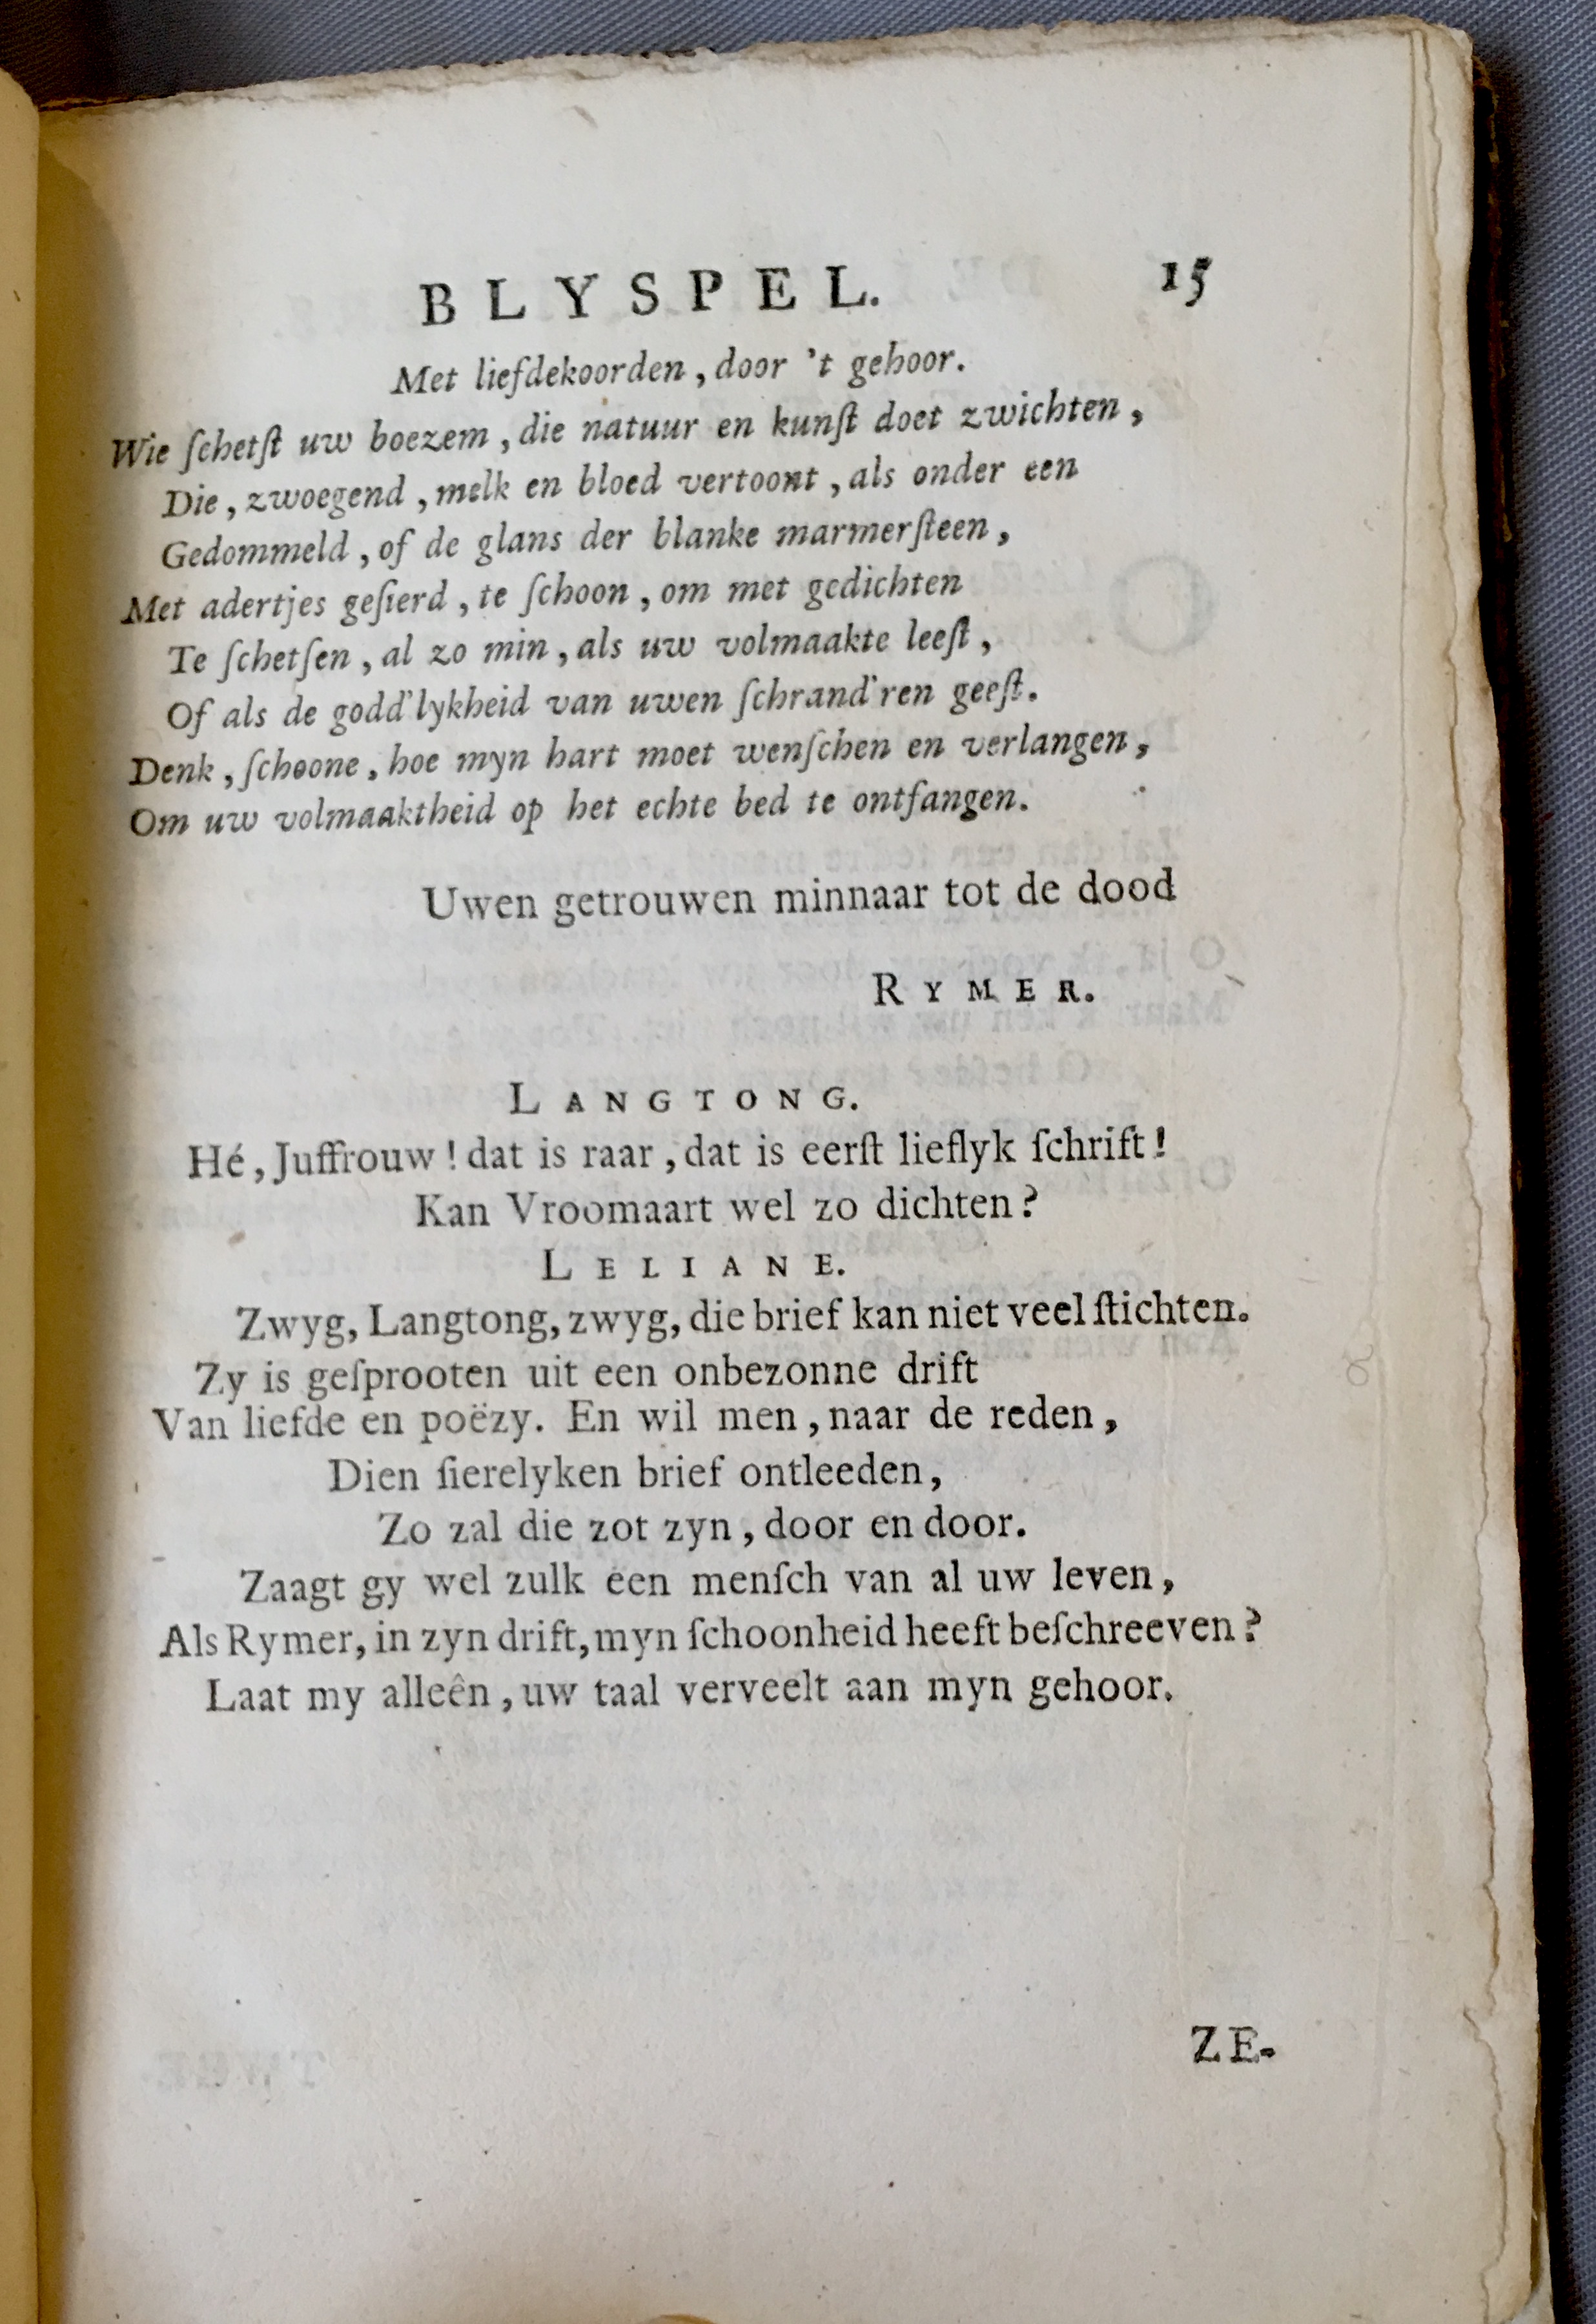 BLYSPEL. 15
Met liefdekoorden, door 't gehoor.
Wie ſchetſt uw boezem, die natuur en kunſt doet zwichten,
Die, zwoegend, melk en bloed vertoont, als onder een
Gedommeld, of de glans der blanke marmerſteen,
Met adertjes geſierd, te ſchoon, om met gedichten
Te ſchetſen, al zo min, als uw volmaakte leeſt,
Of als de godd'lykheid van uwen ſchrand'ren geeſt.
Denk, ſchoone, hoe myn hart moet wenſchen en verlangen,
Om uw volmaaktheid op het echte bed te ontfangen.
Uwen getrouwen minnaar tot de dood
RYMER.
LANGTONG.
Hé, Juffrouw! dat is raar, dat is eerſt lieflyk ſchrift!
Kan Vroomaart wel zo dichten?
LELIANE.
Zwyg, Langtong, zwyg, die brief kan niet veel ſtichten.
Zy is geſprooten uit een onbezonne drift
Van liefde en poëzy. En wil men, naar de reden,
Dien ſierelyken brief ontleeden,
Zo zal die zot zyn, door en door.
Zaagt gy wel zulk een menſch van al uw leven,
Als Rymer, in zyn drift, myn ſchoonheid heeft beſchreeven?
Laat my alleên, uw taal verveelt aan myn gehoor.
ZE-